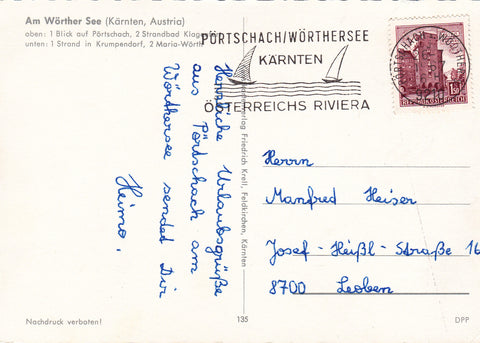 Am Wörther See (Kärnten, Austria)
oben: 1 Blick auf Pörtschach, 2 Strandbad
unten: 1 Strand in Krumpendorf, 2 Maria-Wörth
PÖRTSCHACH/WÖRTHERSEE
KÄRNTEN
ÖSTERREICHS RIVIERA
Herzliche Urlaubsgrüße
aus Pörtschach am
Wörthersee sendet Dir
Heimo.
Friedrich Krell, Feldkirchen, Kärnten
Herrn
Manfred Heiser
Josef-Heißl-Straße 16
8700 Leoben
Nachdruck verboten!
135
DPP